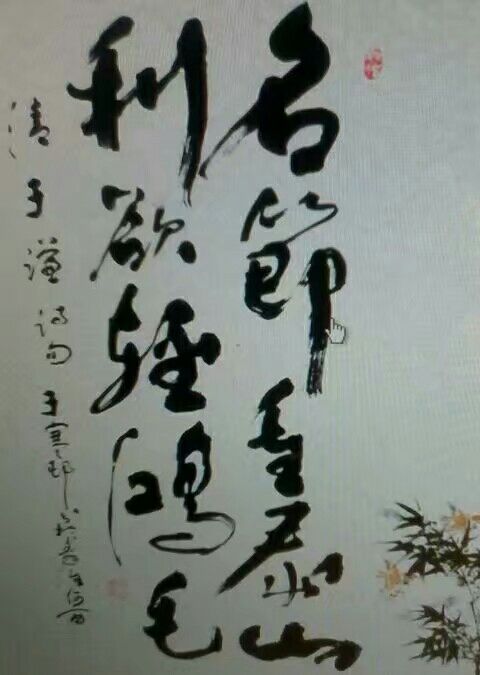 名節重泰山
利欲輕鴻毛
清于謙詩句于宣